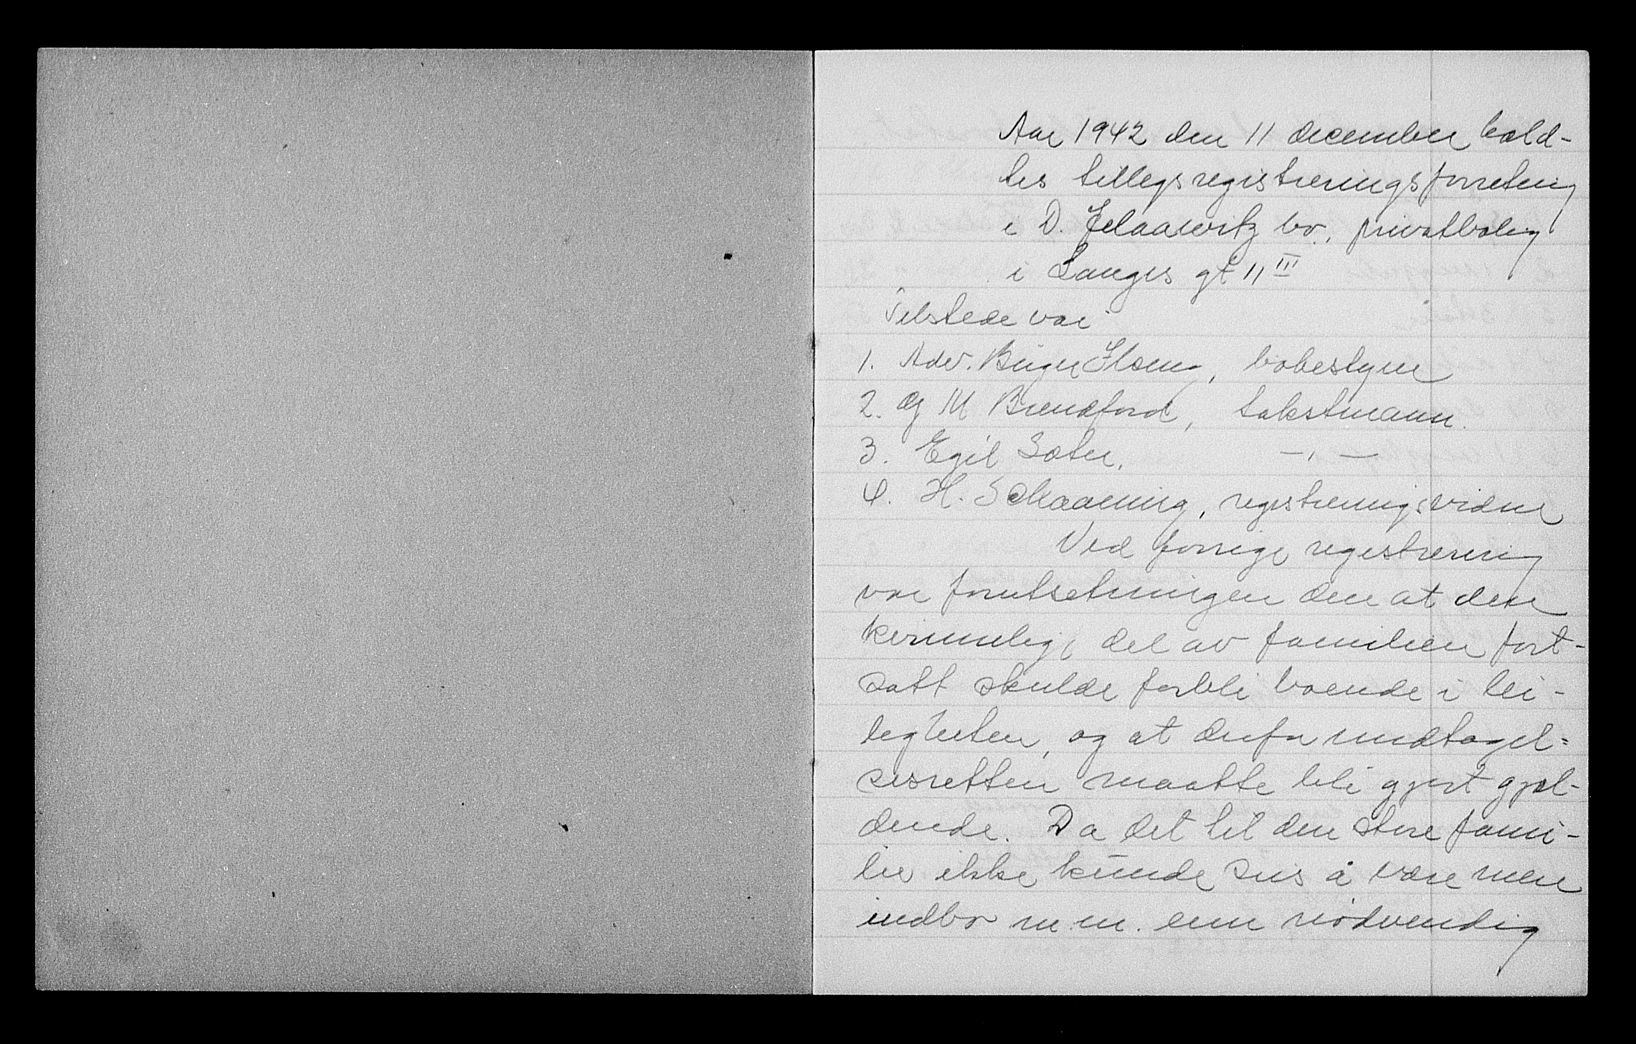 Aar 1942 den 11 december hold-
tes tillegsregistreringsforretning
i D. Jelaawitz bo, privatbolig
i Langes gt 11 III
Tilstede var
1. Adv. Birger , bobestyrer
2. Og M Brendford, takstmann.
3. Egil Sæter, — " —
4. H. Schaaning, registreringsvidne
Ved forrige registrering
var forutsetningen den at den
kvinnelige del av familien fort-
satt skulde forbli boende i lei-
ligheten, og at derfor undtagel-
sesretten maatte bli gjort gjæl-
dende. Da det til den store fami-
lie ikke kunde sies å være mere
indbo m.m. enn nødvendig